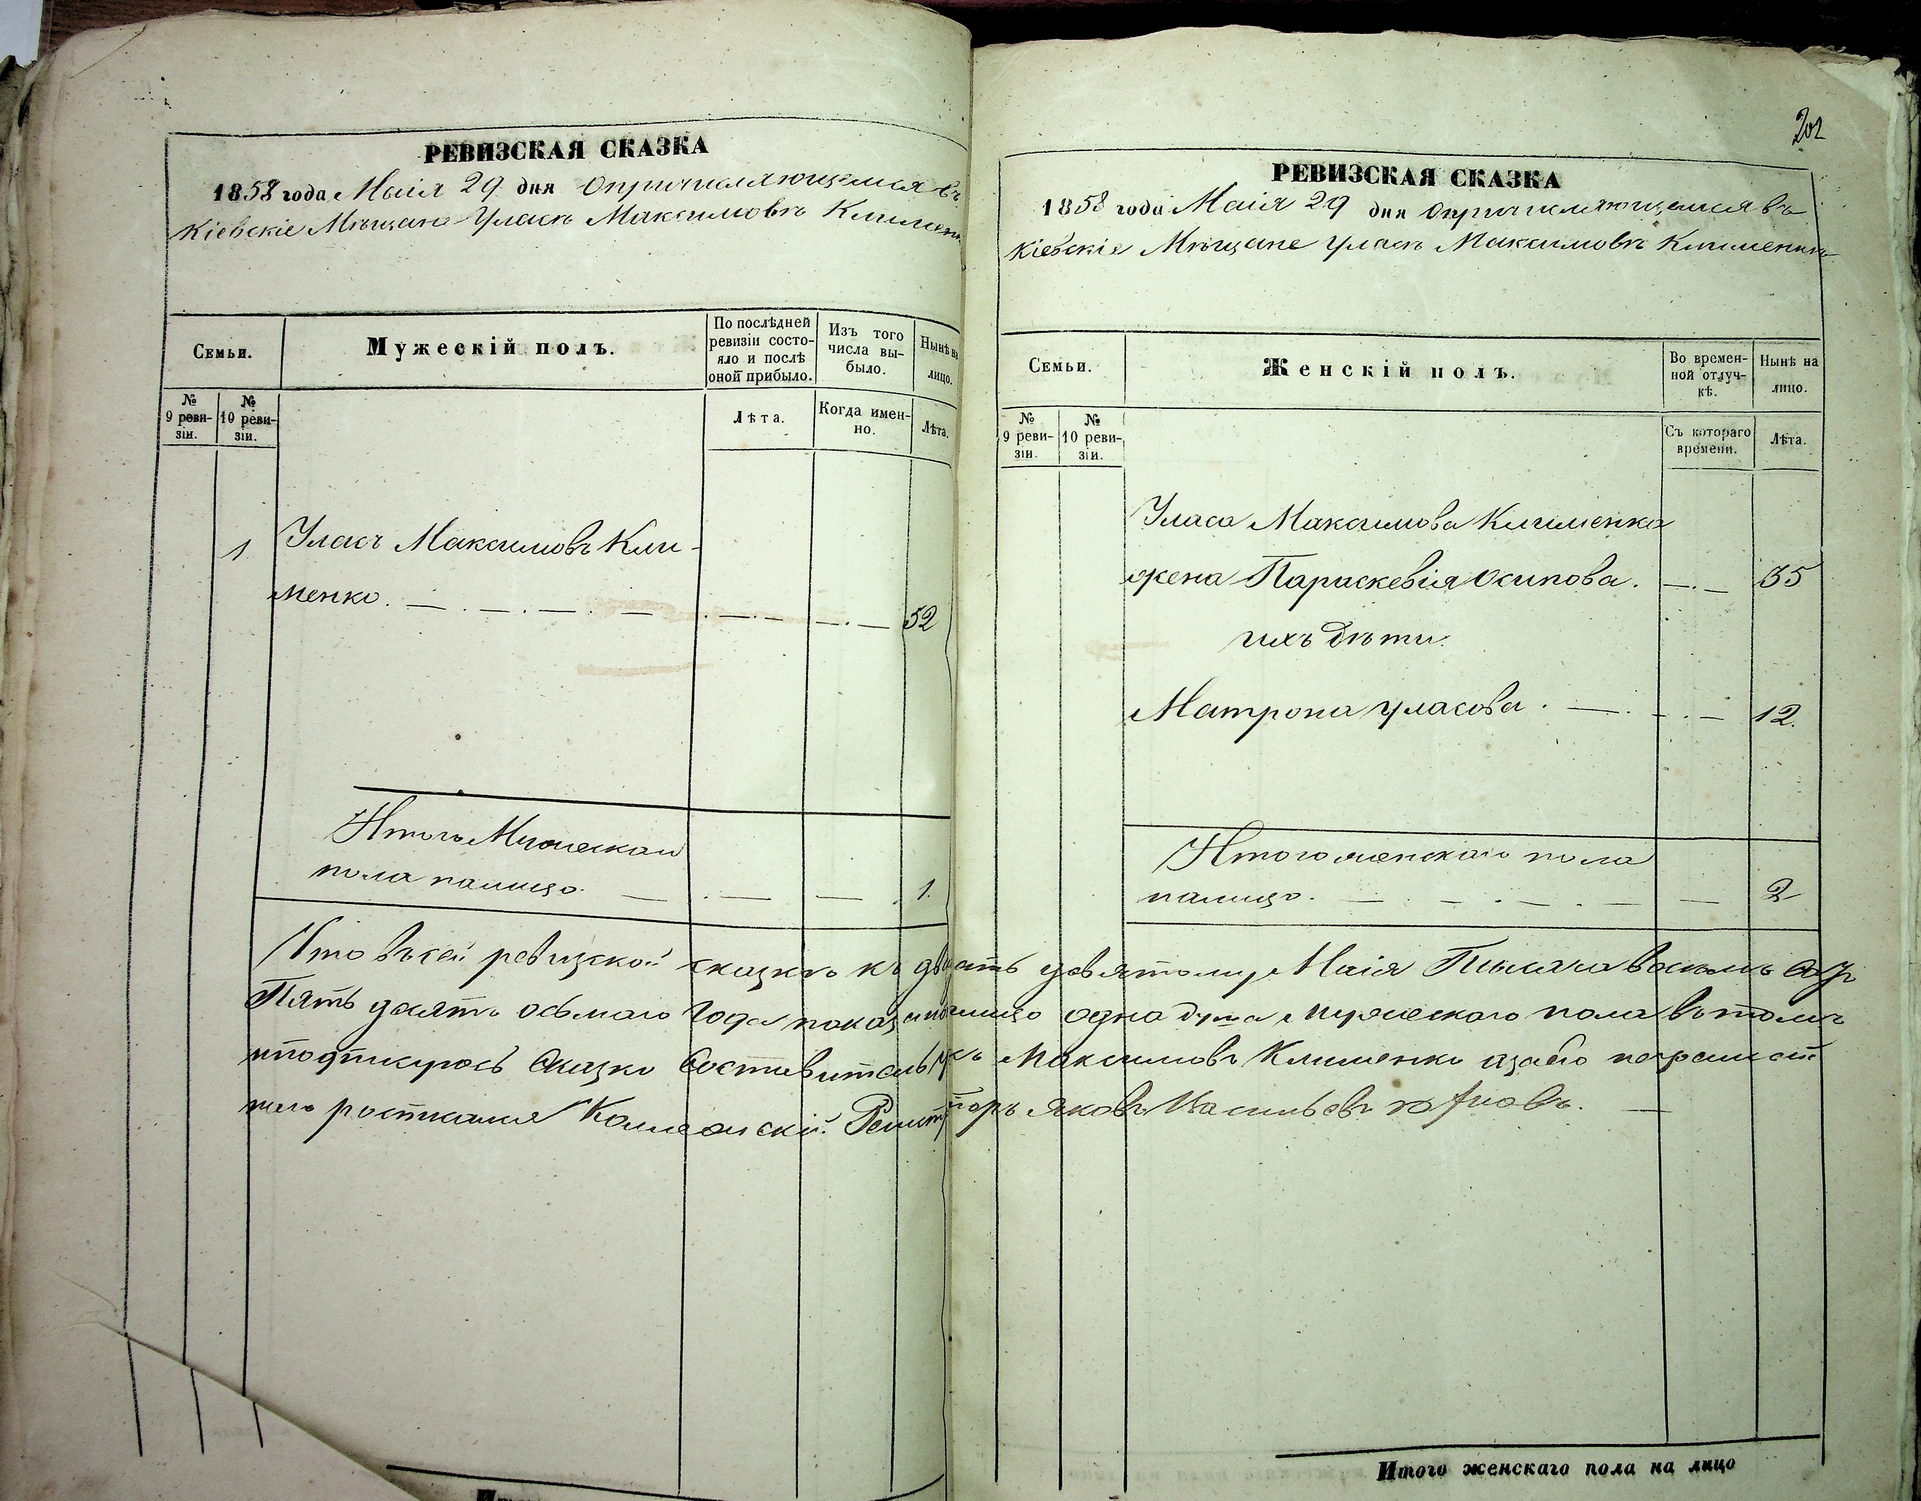 РЕВИЗСКАЯ СКАЗКА
1858 года Маія 29 дня о причисляющемся въ
Кіевскіе Мѣщане Уласѣ Максимовѣ Климен
Семьи.
Мужескій полъ.
По послѣдней ревизіи состояло и послѣ оной прибыло.
Изъ того числа выбыло.
Нынѣ на лицо.
№ 9 ревизіи.
№ 10 ревизіи.
Лѣта.
Когда именно.
Лѣта.
1 Уласъ Максимовъ Кли-
менко. 52
Итого Мужескаго
пола налицо 1.
202
РЕВИЗСКАЯ СКАЗКА
1858 года Маія 29 дня о причисляющемся въ
Кіевскіе Мѣщане Уласѣ Максимовѣ Клименкѣ
Семьи.
Женскій полъ.
Во временной отлучкѣ.
Нынѣ на лицо.
№ 9 ревизіи.
№ 10 ревизіи.
Съ котораго времени.
Лѣта.
Уласа Максимова Клименка
жена Параскевія Осипова. 35
ихъ дѣти
Матрона Уласова. 12.
Итого женскаго пола
налицо. 2
Что въ сей ревизской сказкѣ къ двадцать девятому Маія Тысяча восемь
Пять десять осьмаго года показано налицо одна душа мужескаго пола въ томъ
и подпишуюсь Сказко Составитель Максимовъ Клименко а за его неграмот
Коллежскій Регистраторъ Яковъ Васильевъ
Итого женскаго пола на лицо